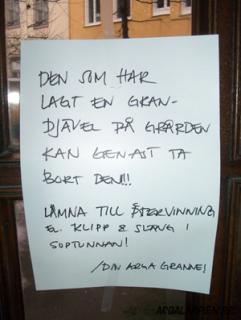 DEN SOM HAR
LAGT EN GRAN-
DJÄVEL PÅ GRÅRDEN
KAN GENAST TA
BORT DEN!!!
LÄMNA TILL ÅTERVINNING
EL. KLIPP & SLÄNG I
SOPTUNNAN!
/DIN ARGA GRANNE!
ARGALAPPEN.SE